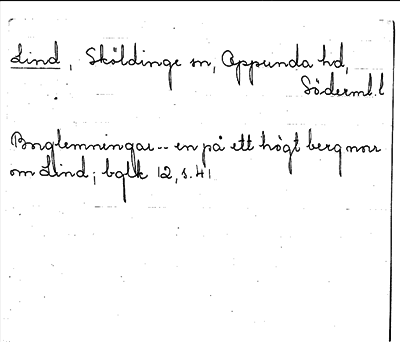 Lind, Sköldinge sn, Oppunda hd,
Söderml. l
Borglemningar -- en på ett högt berg norr
om Lind; bglk 12, s. 41